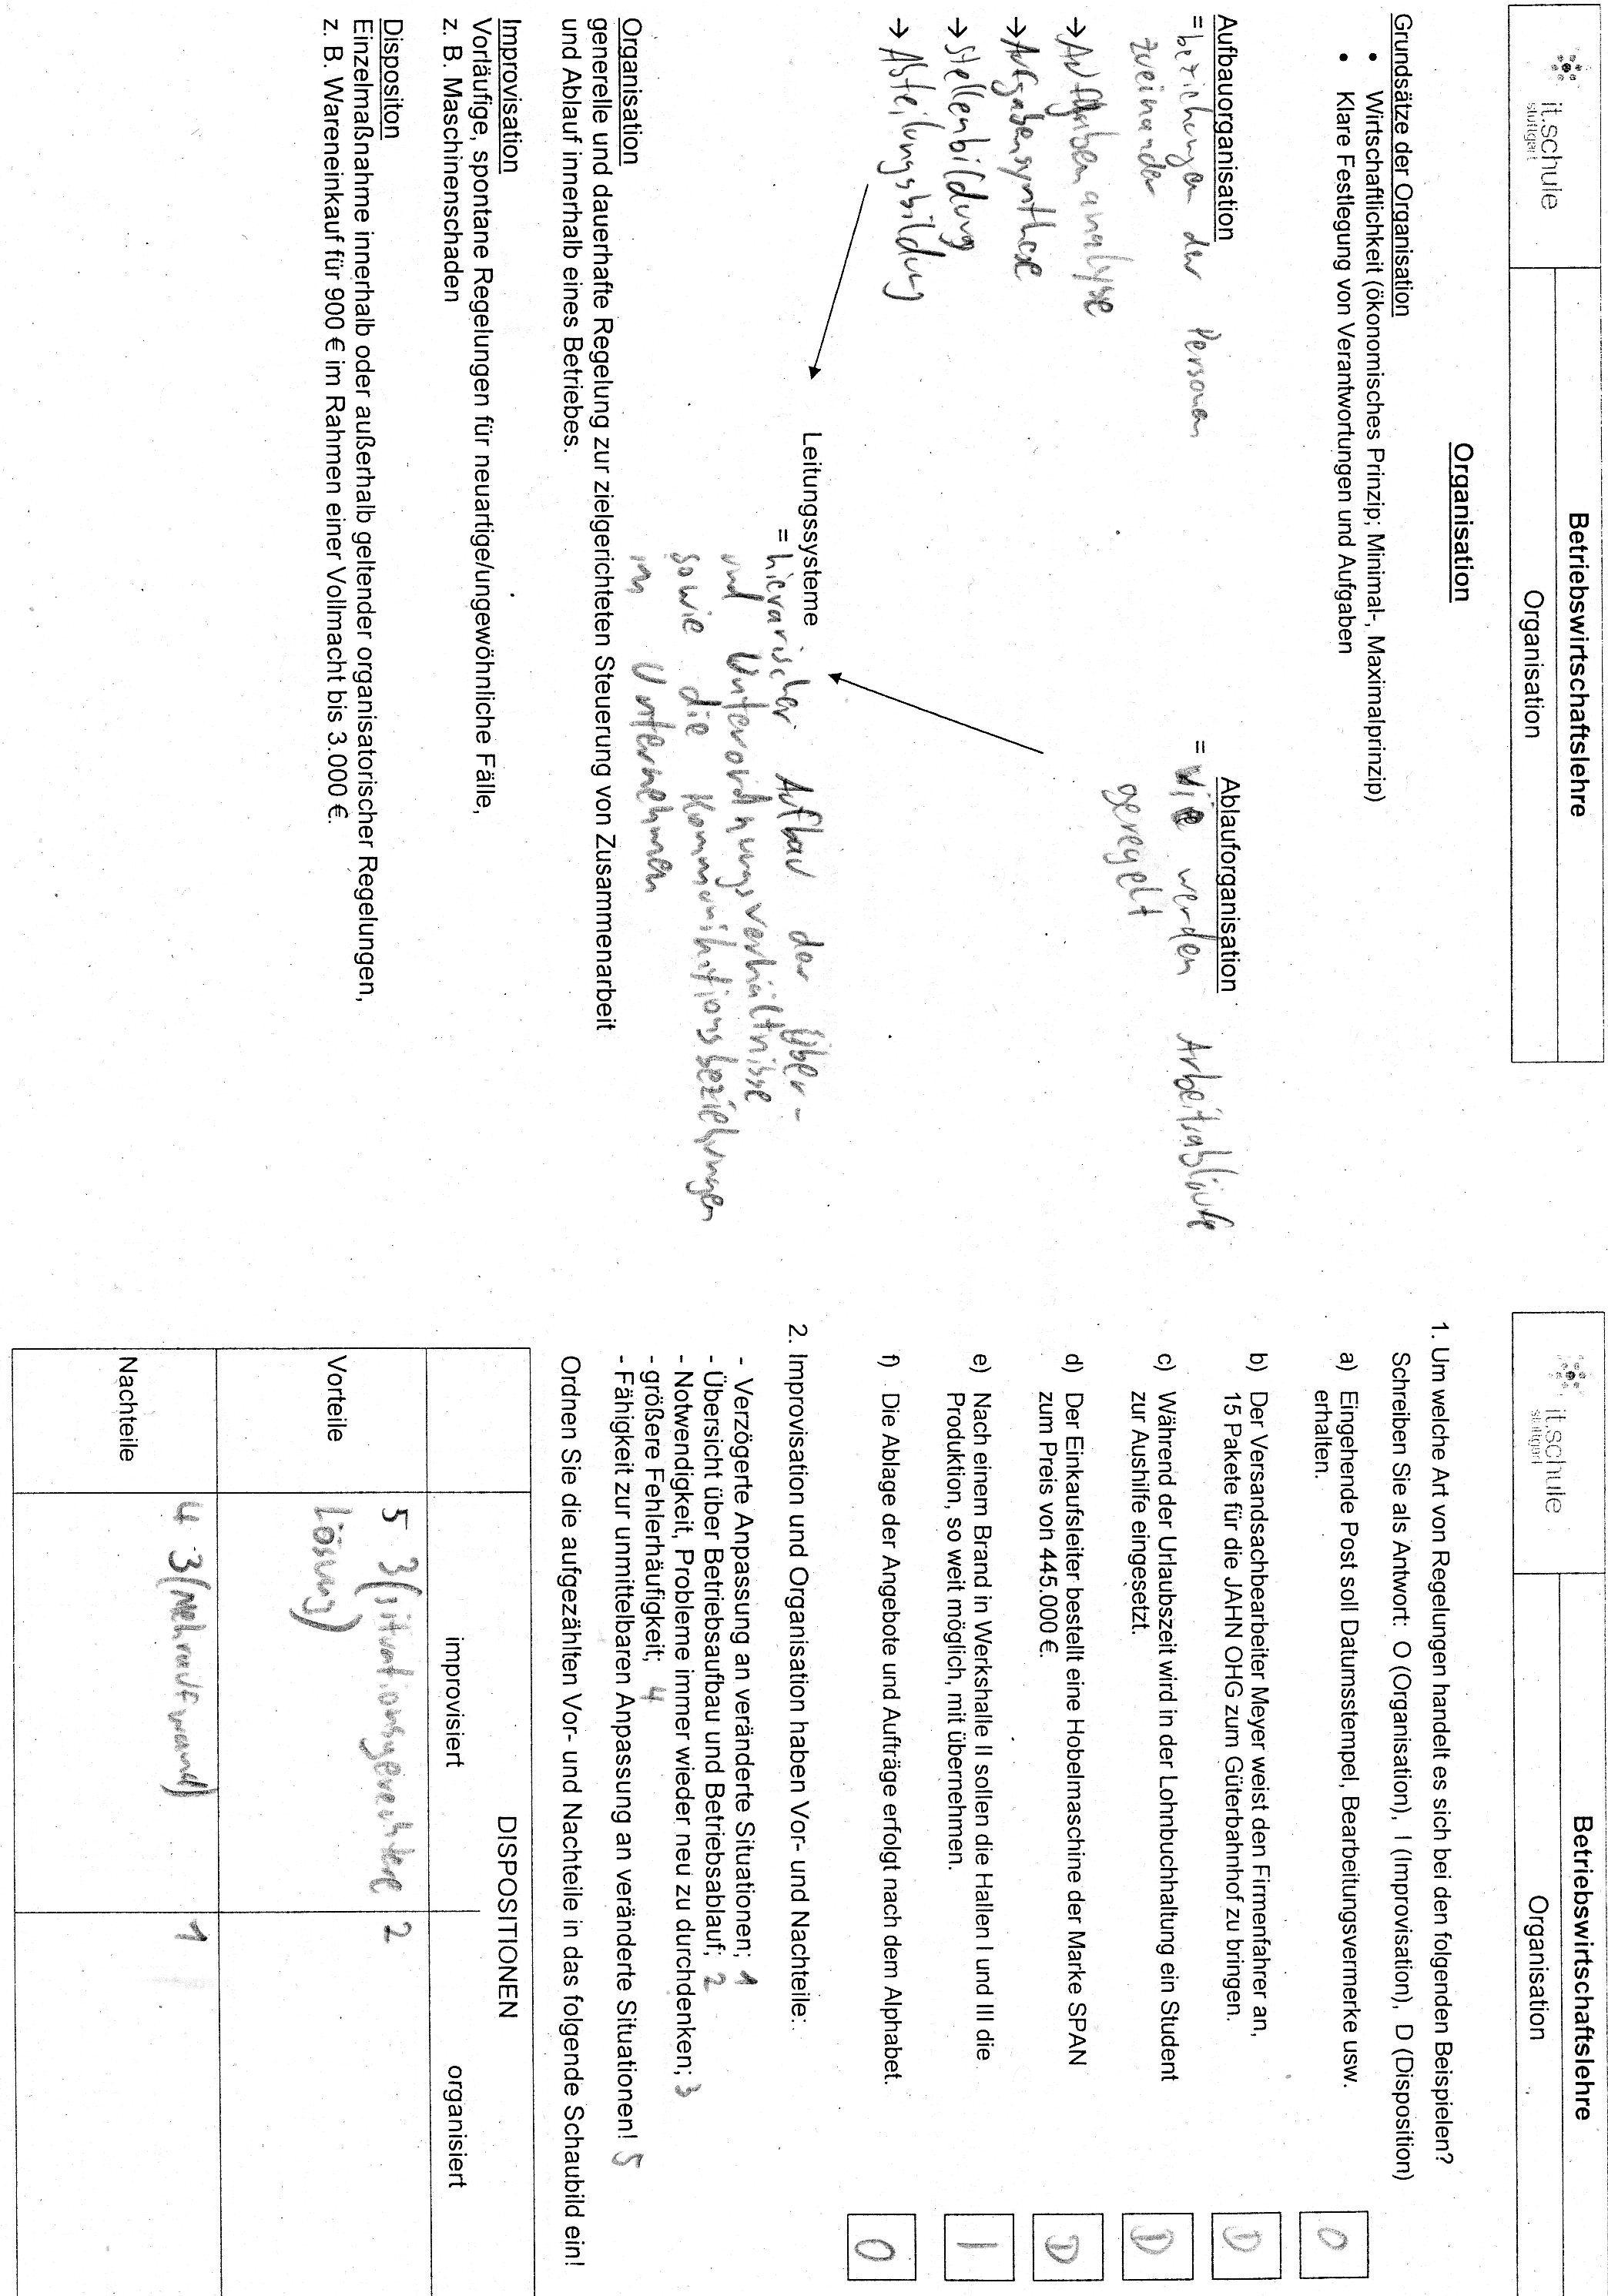 it.schule
stuttgart
Betriebswirtschaftslehre
Organisation
Organisation
Grundsätze der Organisation
• Wirtschaftlichkeit (ökonomisches Prinzip; Minimal-, Maximalprinzip)
• Klare Festlegung von Verantwortungen und Aufgaben
Aufbauorganisation
= beziehungen der Personen
zueinander
→ Aufgabenanalyse
→ Aufgabensynthese
→ Stellenbildung
→ Abteilungsbildung
Ablauforganisation
= Wie werden Arbeitsabläufe
geregelt
Leitungssysteme
= hierarischer Aufbau der über-
und Unterordnungsverhältnisse
sowie die Kommunikationsbeziehungen
im Unternehmen
Organisation
generelle und dauerhafte Regelung zur zielgerichteten Steuerung von Zusammenarbeit
und Ablauf innerhalb eines Betriebes.
Improvisation
Vorläufige, spontane Regelungen für neuartige/ungewöhnliche Fälle,
z. B. Maschinenschaden
Dispositon
Einzelmaßnahme innerhalb oder außerhalb geltender organisatorischer Regelungen,
z. B. Wareneinkauf für 900 € im Rahmen einer Vollmacht bis 3.000 €.
it.schule
stuttgart
Betriebswirtschaftslehre
Organisation
1. Um welche Art von Regelungen handelt es sich bei den folgenden Beispielen?
Schreiben Sie als Antwort: O (Organisation), I (Improvisation), D (Disposition)
a) Eingehende Post soll Datumsstempel, Bearbeitungsvermerke usw.
erhalten. O
b) Der Versandsachbearbeiter Meyer weist den Firmenfahrer an,
15 Pakete für die JAHN OHG zum Güterbahnhof zu bringen. D
c) Während der Urlaubszeit wird in der Lohnbuchhaltung ein Student
zur Aushilfe eingesetzt. D
d) Der Einkaufsleiter bestellt eine Hobelmaschine der Marke SPAN
zum Preis von 445.000 €. D
e) Nach einem Brand in Werkshalle II sollen die Hallen I und III die
Produktion, so weit möglich, mit übernehmen. I
f) Die Ablage der Angebote und Aufträge erfolgt nach dem Alphabet. O
2. Improvisation und Organisation haben Vor- und Nachteile:
- Verzögerte Anpassung an veränderte Situationen; 1
- Übersicht über Betriebsaufbau und Betriebsablauf; 2
- Notwendigkeit, Probleme immer wieder neu zu durchdenken; 3
- größere Fehlerhäufigkeit; 4
- Fähigkeit zur unmittelbaren Anpassung an veränderte Situationen! 5
Ordnen Sie die aufgezählten Vor- und Nachteile in das folgende Schaubild ein!
DISPOSITIONEN
improvisiert organisiert
Vorteile 5 3 (situationsgerechtere 2
Lösung)
Nachteile 4 3 (Mehraufwand) 1